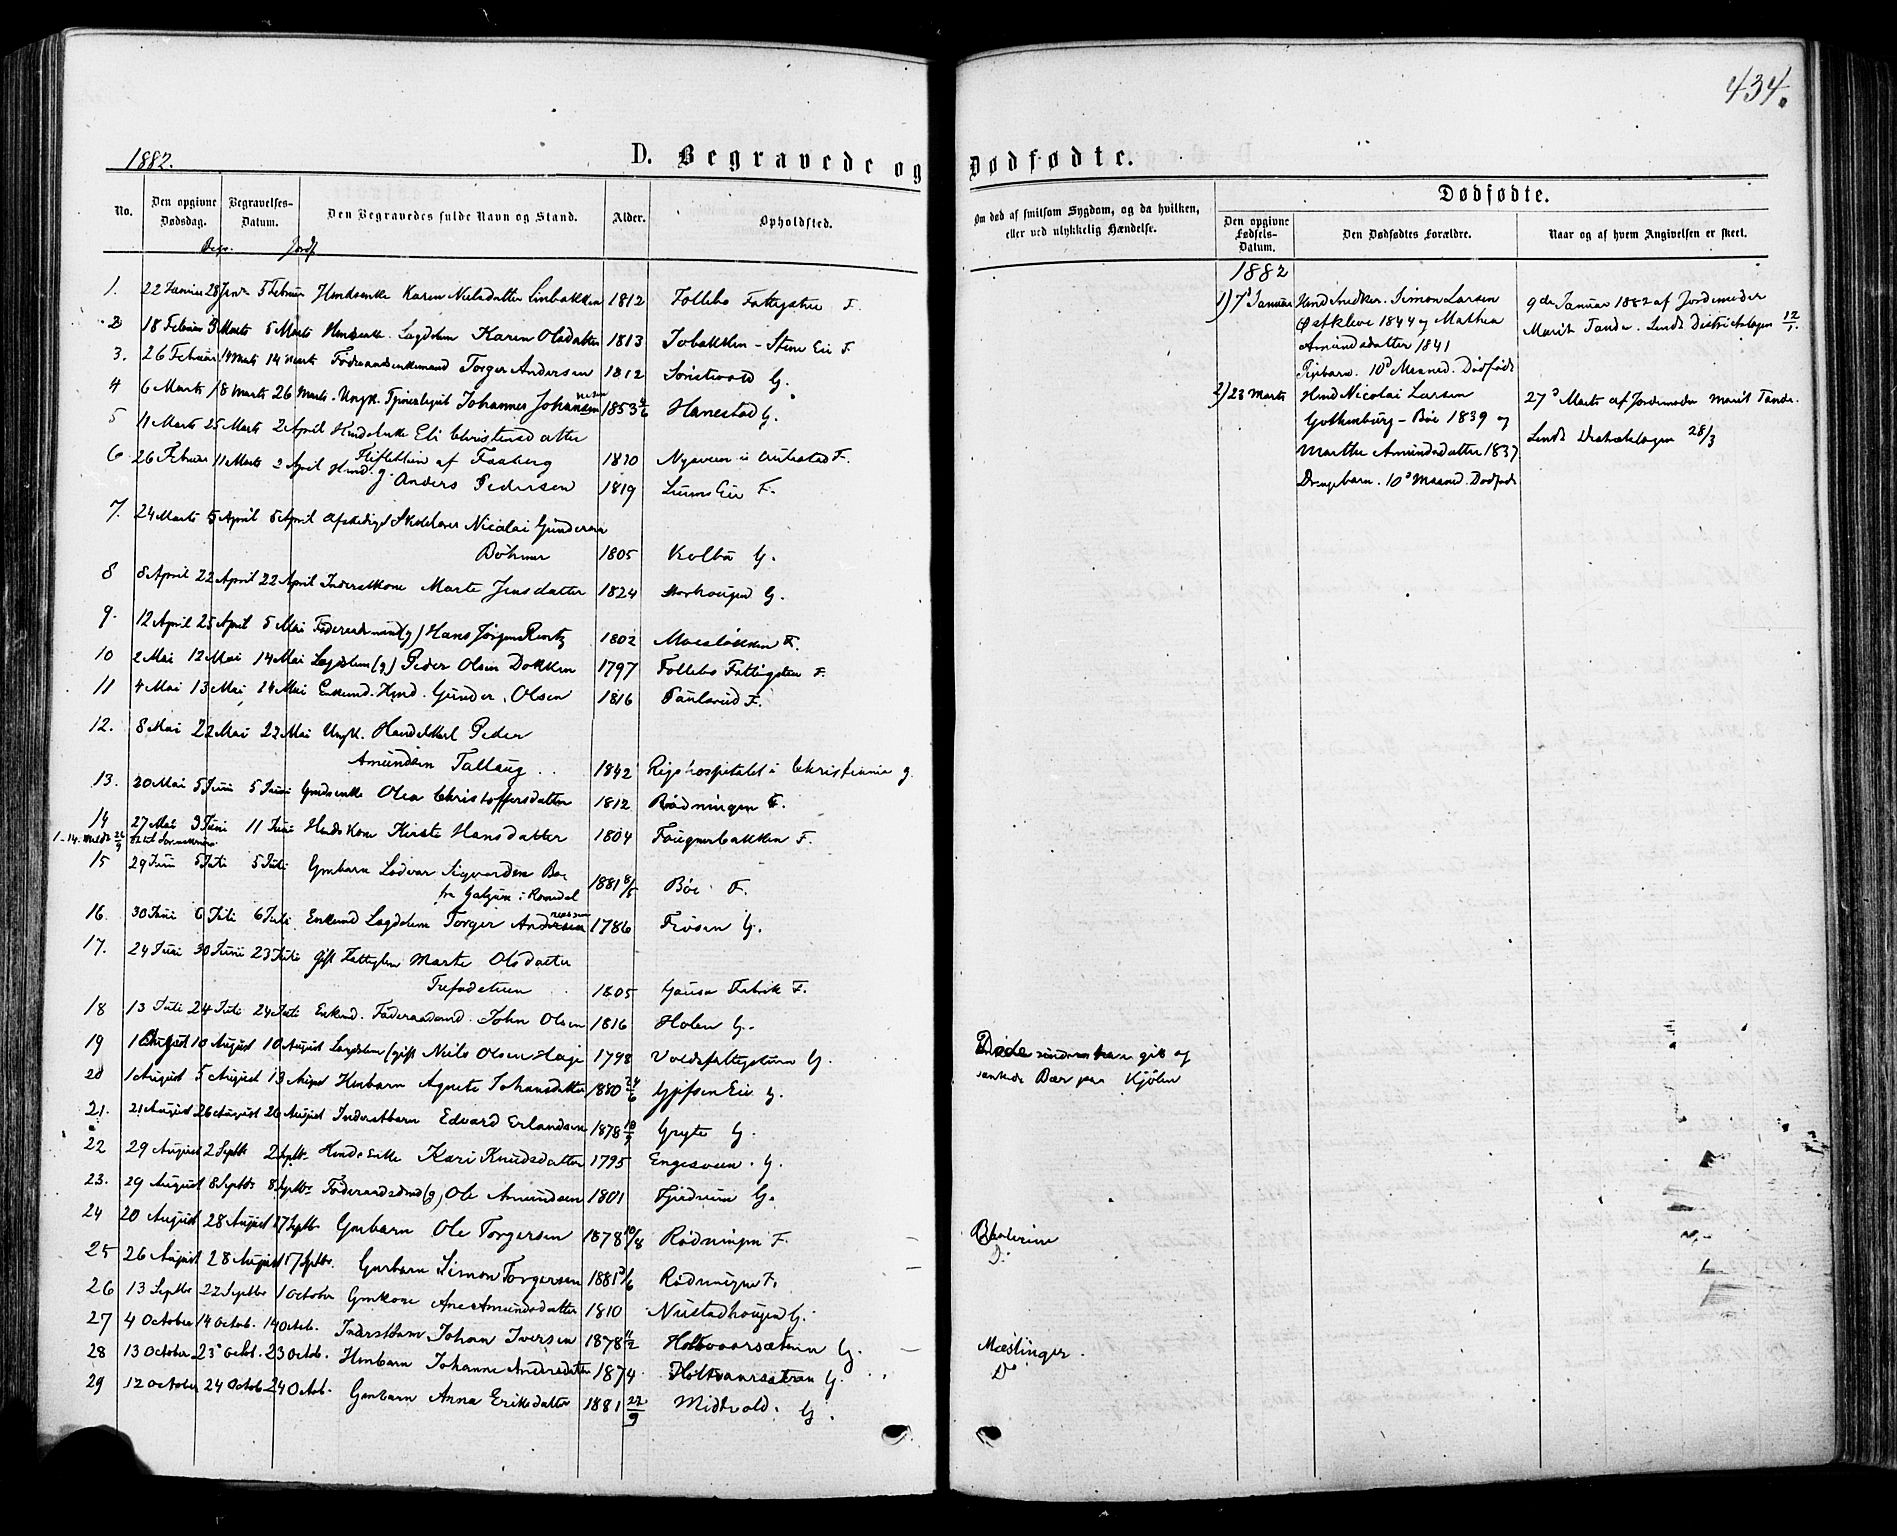 434.
1882.
D. Begravede og Dødfødte.
No.
Den opgivne Dødsdag.
Begravelses-Datum.
Den Begravedes fulde Navn og Stand.
Alder.
Opholdsted.
Om død af smitsom Sygdom, og da hvilken, eller ved ulykkelig Hændelse.
Dødfødte.
Den opgivne Fødsels-Datum.
Den Dødfødtes Forældre.
Naar og af hvem Angivelsen er skeet.
Begr. Jordf.
1. 22 Januar 28 Janr 5 Februar Karen Nielsdatter Linbakken 1812 Follebo Fattigstue F.
2 18 Februar 3 Marts 5 Marts Lægdslem Karen Olsdatter 1813 Jobakken - Steine Eie F
3. 26 Februar 14 Marts 14 Marts Føderaadsenkemand Torger Andersen 1812 G.
4 6 Marts 18 Marts 26 Marts. Ungk. Johannes Johansen 1853 Hanestad G.
5 11 Marts 25 Marts 2 April Huusmds Enke Eli Christensdatter
af Faaberg 1810 Nysveen i Aulestad F.
6 26 Februar 11 Marts 2 April Husmd. g. Anders Pedersen 1819 Eie F.
7. 24 Marts 5 April 5 April Afskediget Skolelærer Nicolai Gundersen
Böhmer 1805 Kolbu G.
8 8 April 22 April 22 April Inderstkone Marte Jensdatter 1824 Storhougen G.
9. 12 April 25 April 5 Mai Føderaadsmand (g) Hans Jørgensen 1802 Moesløkken F.
10 2 Mai 12 Mai 14 Mai Lægdslem (g) Peder Olsen Dokken 1797 Follebo Fattigstue F.
11 4 Mai 13 Mai 14 Mai Enkemd. Husmd. Gunder Olsen 1816 Paulsrud F.
12. 8 Mai 22 Mai 22 Mai Ungk. Handelskarl Peder
Amundsen Tallaug . . 1842 Rigshospitalet i Christiania g.
13. 20 Mai 5 Juni 5 Juni Gmdsenke Olea Christoffersdatter 1812 Rødningen F.
14 27 Mai 3 Juni 11 Juni Husmds Kone Kirste Hansdatter 1804 Fougnerbakken F.
15 29 Juni 5 Juli 5 Juli Gmbarn Lodvar Sigvardsen Boe
fra i Romedal 1881 8/5 Böe F.
16. 30 Juni 6 Juli 6 Juli Enkemd Lægdslem Torger Andersen 1786 Frøsen G.
17. 24 Juni 30 Juni 23 Juli Gift Fattiglem Marte Olsdatter
. . 1805 Gausa Fabrik F.
18 13 Juli 24 Juli 24 Juli Enkemd. Føderaadsmd. John Olsen 1816 Holen G.
19 1 August 10 August 10 August Lægdslem (gift Niels Olsen Hage 1798 Voldsfattigstuen G.
20 1 August 5 August 13 August Husmbarn Agnete Johansdatter 1880 24/6 Eie G.
21. 21 August 26 August 26 August Inderstbarn Edvard Erlandsen 1878 10/9 Gryte G.
22 29 August 2 Septb 2 Septb. Husmds Enke Kari Knudsdatter 1795 Engesveen. G.
23. 29 August 8 Septbr 8 Septbr Føderaadsmd (g) Ole Amundsen 1801 G.
24 20 August 28 August 17 Septb. Gmbarn Ole Torgersen 1878 10/8 Rødningen F.
25 26 August 28 August 17 Septbr. Gmbarn Simon Torgersen 1881 Rødningen F.
26 13 Septbr 22 Septbr 1 October Gmkone Ane Amundsdatter 1810 Nustadhougen G.
27 4 October 14 Octob. 14 Octob. Inderstbarn Johan Iversen 1878 G.
28 13 October 23 Octob. 23 Octob. Husmbarn Johanne Andersdatter 1874 G.
29 12 October 24 Octob. 24 Octob. Gmbarn Anna Eriksdatter 1881 22/9 Midtvold. G.
Døde underveis han gik og
sankede Bær paa Kjølen
D:
Mæslinger.
Do
1882
1) 7d Januar Husmd Snedker. Simon Larsen
Østkleve 1844 og Mathea
Amundsdatter 1841
Pigebarn. 10d Maaned. Dødfødt
9de Januar 1882 af Jordemoder
Marit Tande. Sendt Districtslægen 12/1.
2) 23 Marts Husmd Nicolai Larsen
Guthenburg - Böe 1839 og
Marthe Amundsdatter 1837
Drengebarn. 10d Maaned. Dødfødt
27d Marts af Jordemoder Marit Tande.
Sendt Districtslægen 28/3